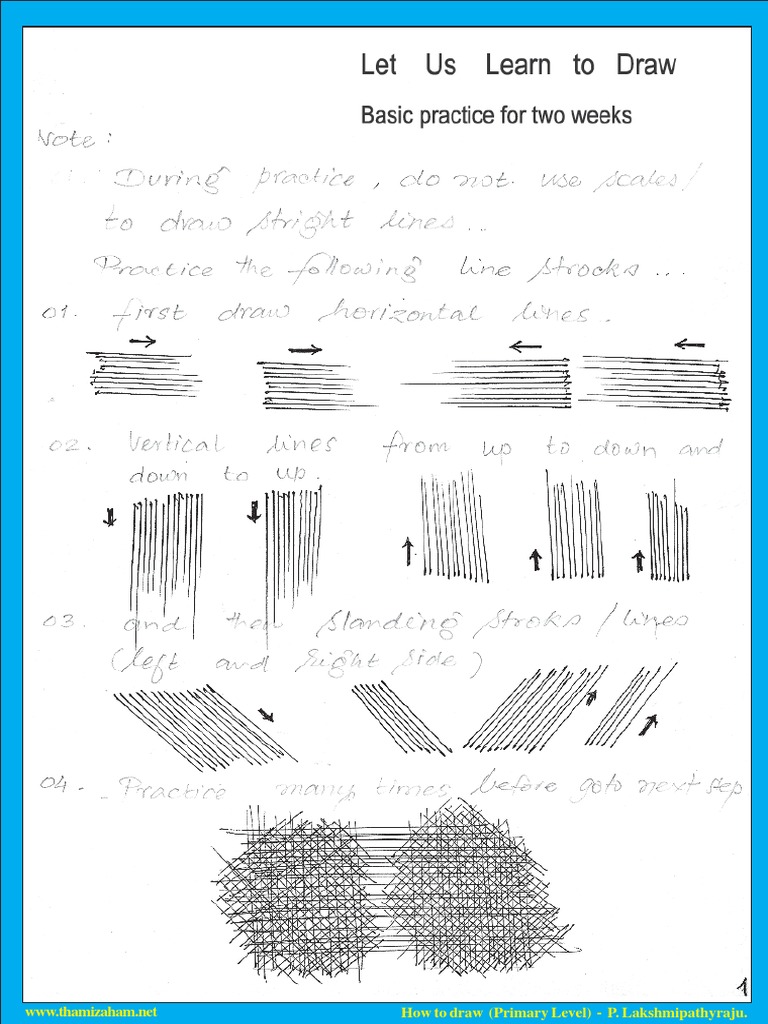 Let Us Learn to Draw
Basic practice for two weeks
Note :
During practice, do not use scales/
to draw stright lines...
Practice the following line strocks ...
01. first draw horizontal lines.
02. Vertical lines from up to down and
down to up.
03. and then slanding stroks / lines
(left and right side)
04. Practice many times before goto next step
1
www.thamizaham.net
How to draw (Primary Level) - P. Lakshmipathyraju.